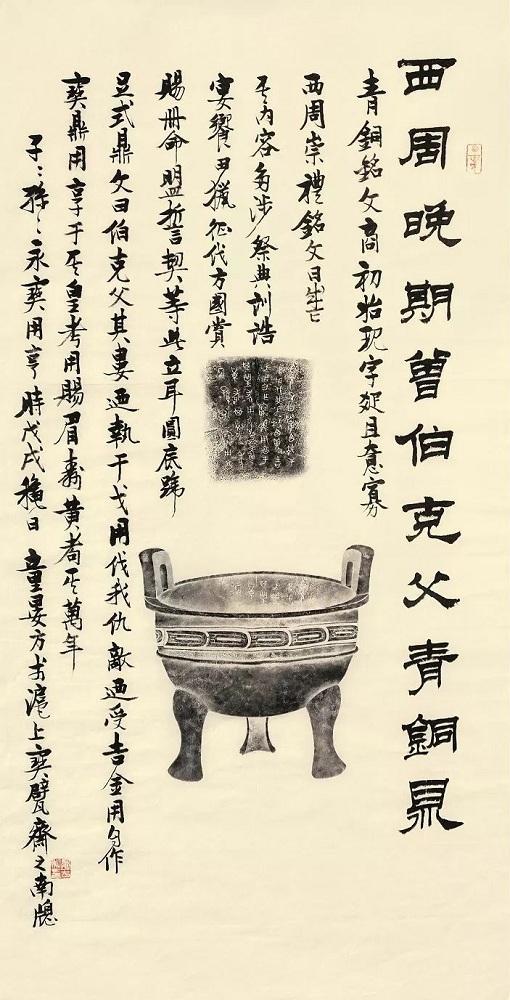 西周晚期曾伯克父青銅鼎
青銅銘文商初始現字疑且意寡
西周崇禮銘文日生亡
其內容多涉祭典訓誥
宴饗田獵征伐方國賞
賜冊命盟誓契等此立耳圓底蹄
足式鼎文曰伯克父其婁迺執干戈用伐我仇敵迺受吉金用自作
寶鼎用享于其皇考用賜眉壽黃耇其萬年
子〻孫〻永寶用享時戊戌穐日童晏方書滬上寶甓齋之南窗